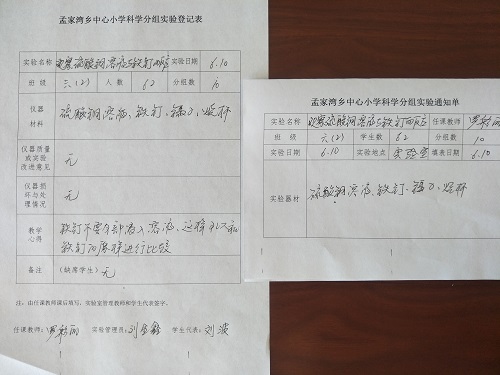 孟家湾乡中心小学科学分组实验登记表
实验名称 观察硫酸铜溶液与铁钉的反应 实验日期 6.10
班 级 六(2) 人 数 62 分组数 10
仪器材料 硫酸铜溶液、铁钉、镊子、烧杯
仪器质量或实验改进意见 无
仪器损坏与处理情况 无
教学心得 铁钉不要全部放入溶液,这样可以和
铁钉的原样进行比较
备注 (缺席学生) 无
注:由任课教师课后填写,实验室管理教师和学生代表签字。
任课教师: 实验管理员:刘 学生代表:刘波
孟家湾乡中心小学科学分组实验通知单
实验名称 观察硫酸铜溶液与铁钉的反应 任课教师
班 级 六(2) 学生数 62 分组数 10
实验日期 6.10 实验地点 实验室 填表日期 6.10
实验器材 硫酸铜溶液、铁钉、镊子、烧杯